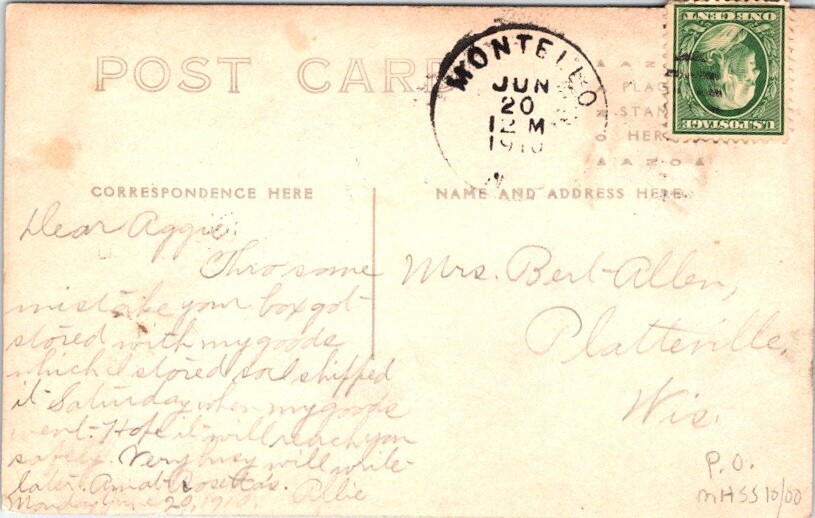 POST CARD
MONTELLO
JUN
20
12 M
1910
ONE CENT
U.S. POSTAGE
AZO
PLACE
STAMP
HERE
AZO
CORRESPONDENCE HERE
NAME AND ADDRESS HERE.
Dear Aggie:
Thro some
mistake your box got
stored with my goods
which I stored so I shipped
it Saturday when my goods
went. Hope it will reach you
safely. Very busy will write
later. Am at Allie
Monday June 20, 1910.
Mrs. Bert Allen,
Platteville,
Wis.
P.O.
MHSS 10/00